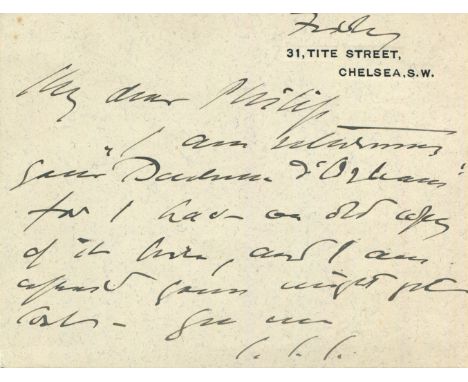 Friday
31, TITE STREET,
CHELSEA, S.W.
My dear Philip
I am returning
your "Duchesse d'Orleans"
for I have an old copy
of it here, and I am
afraid yours might get
lost -
J.S.S.